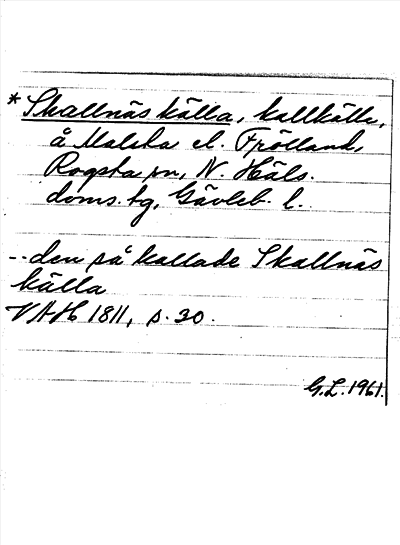 * Skallnäs källa, kallkälla,
å Malsta el. Frölland,
Rogsta sn, N. Häls.
doms.tg, Gävleb. l.
-- den så kallade Skallnäs
källa
VAH 1811, s. 30.
G.L. 1961.